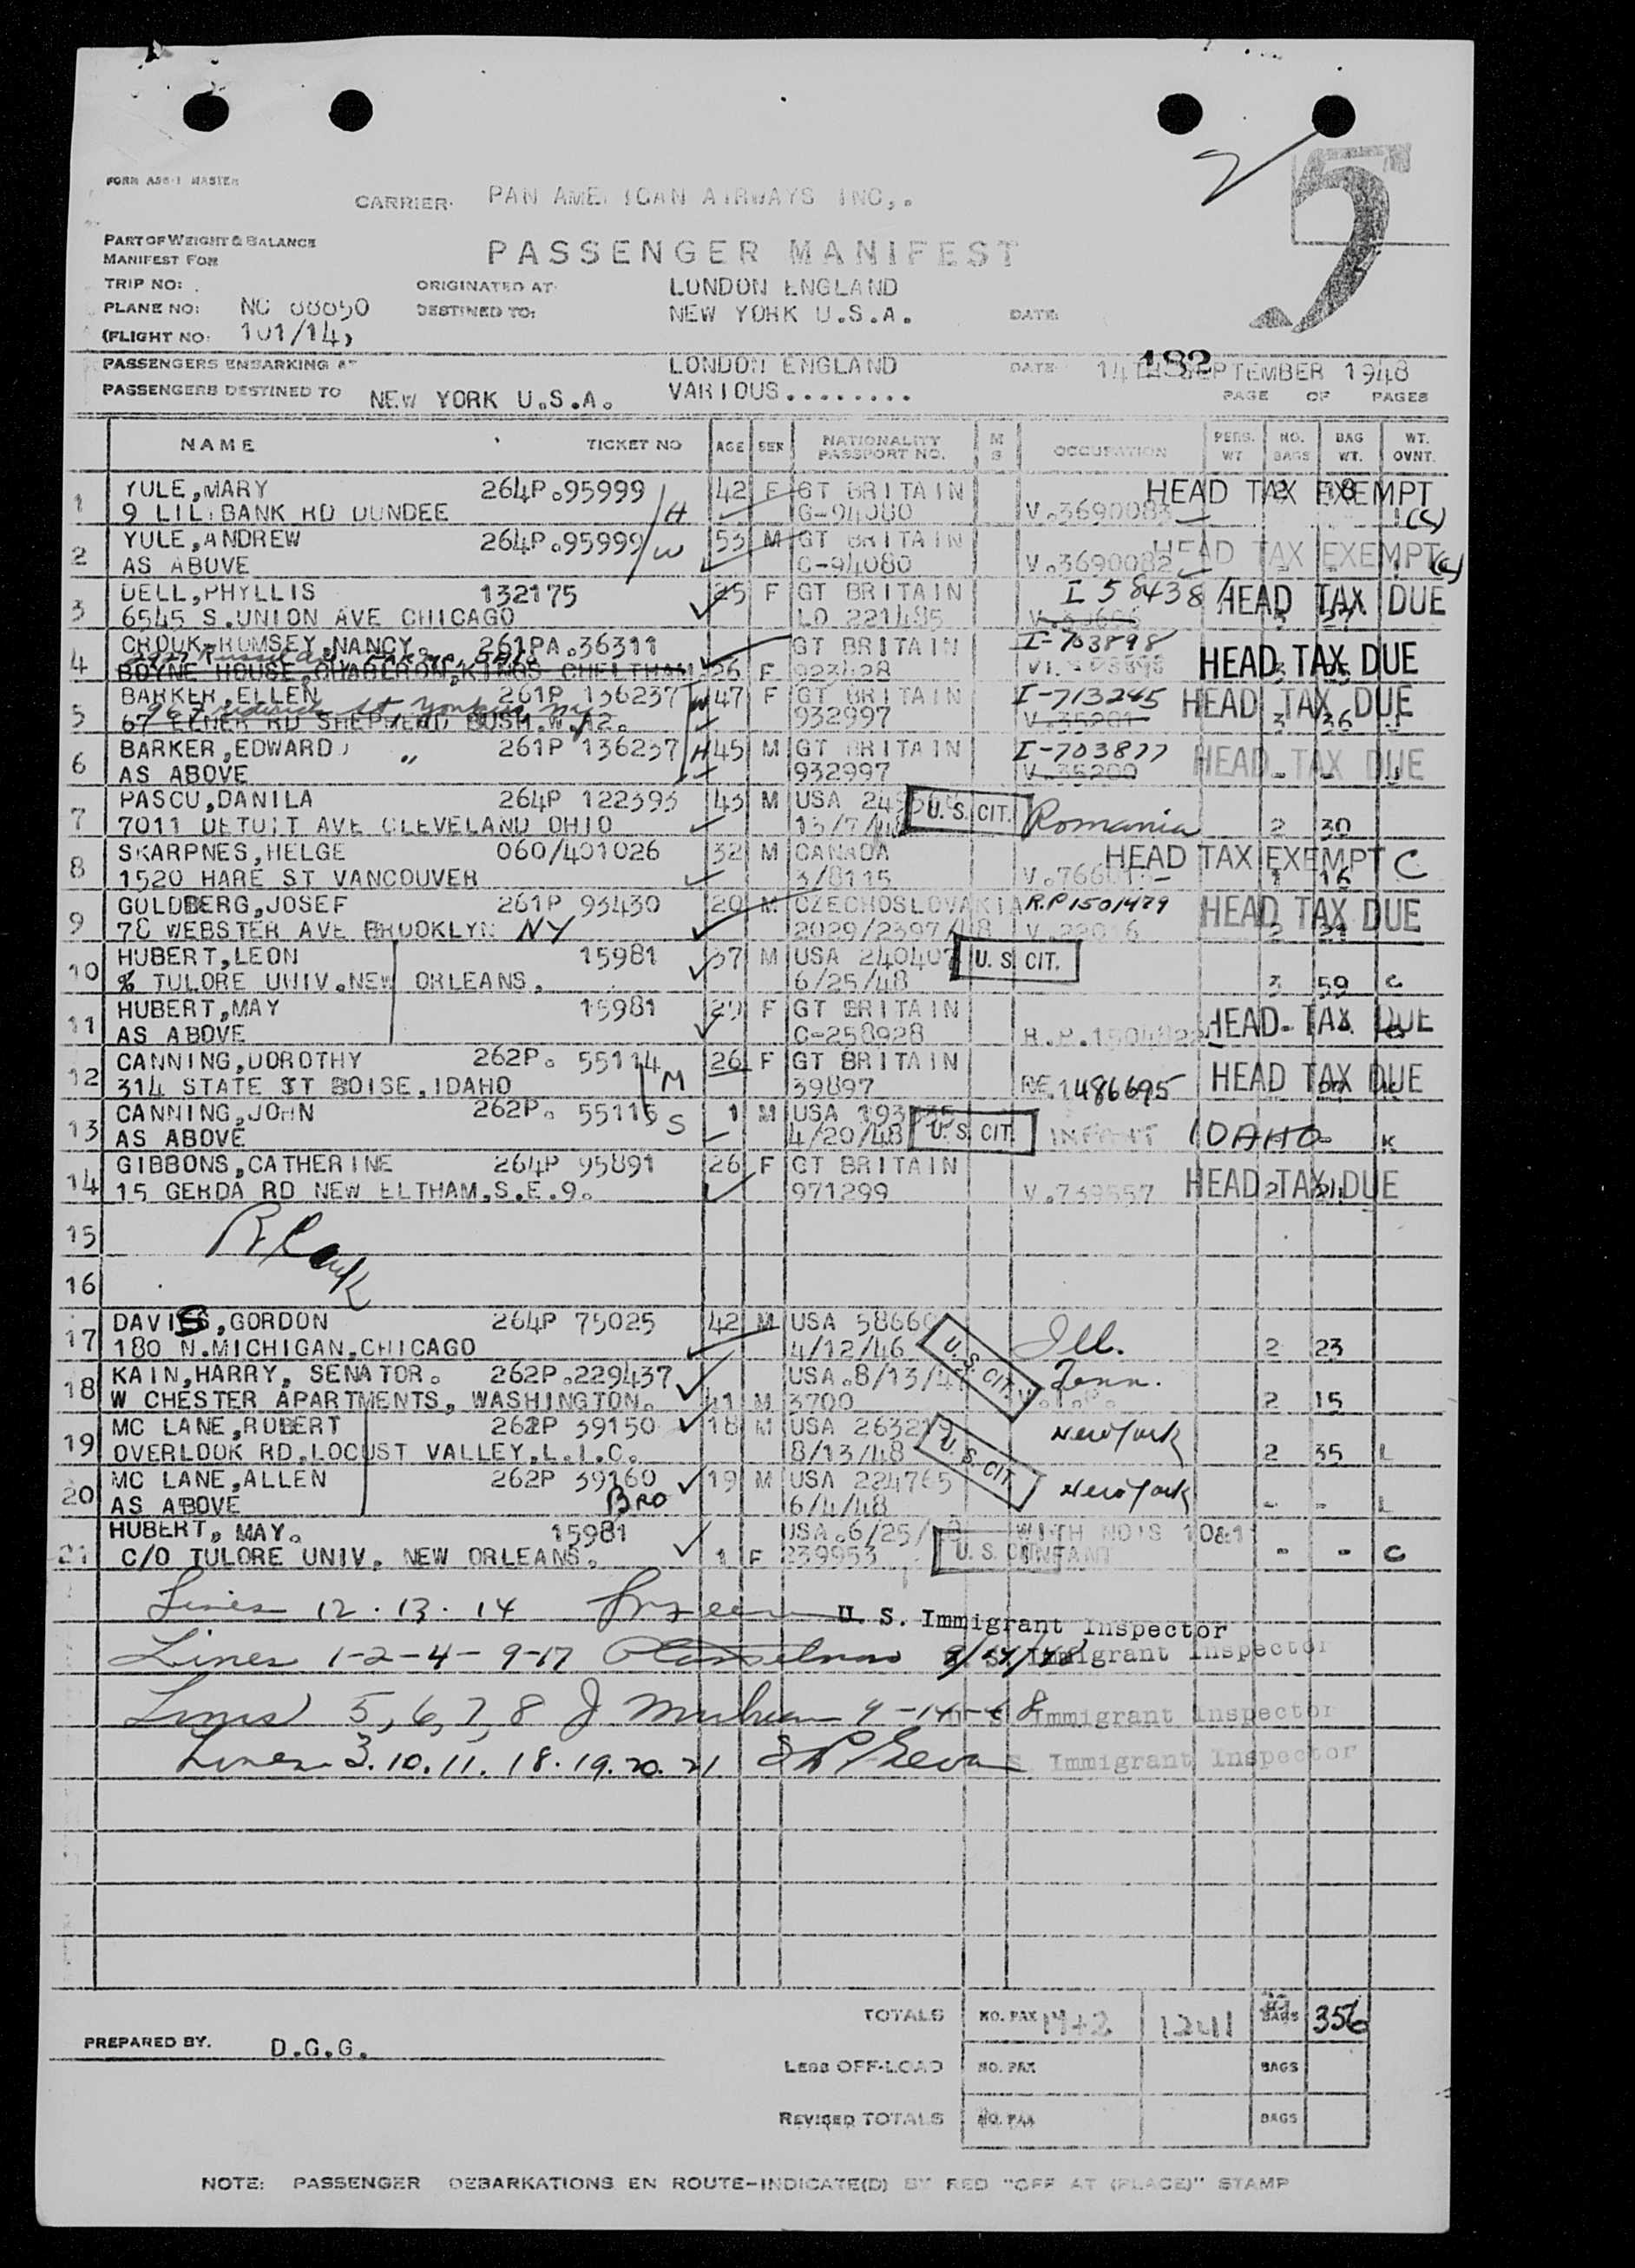 FORM ASS-1 MASTER
CARRIER PAN AMERICAN AIRWAYS INC,.
5
PART OF WEIGHT & BALANCE
MANIFEST FOR
PASSENGER MANIFEST
TRIP NO: ORIGINATED AT: LONDON ENGLAND
PLANE NO: NC DESTINED TO: NEW YORK U.S.A. DATE
(FLIGHT NO: 101/14,
182
PASSENGERS EMBARKING AT LONDON ENGLAND DATE 14TH SEPTEMBER 1948
PASSENGERS DESTINED TO NEW YORK U.S.A. VARIOUS........ PAGE OF PAGES
NAME TICKET NO AGE SEX NATIONALITY PASSPORT NO. M S OCCUPATION PERS. WT NO. BAGS BAG WT. WT. OVNT.
1 YULE,MARY 264P.95999 H 42 F GT BRITAIN HEAD TAX EXEMPT
9 LILIBANK RD DUNDEE G-94080 V.3690083 (C)
2 YULE,ANDREW 264P.95999 W 53 M GT BRITAIN HEAD TAX EXEMPT
AS ABOVE C-94080 V.3690082 (C)
3 DELL,PHYLLIS 132175 25 F GT BRITAIN I 58438 HEAD TAX DUE
6545 S.UNION AVE CHICAGO LO 221485
4 CROUK-RUMSEY,NANCY. 261PA.36311 GT BRITAIN I-703898 HEAD TAX DUE
BOYNE HOUSE, KINGS CHELTHAM 26 F 923428
5 BARKER,ELLEN 261P 136237 W 47 F GT BRITAIN I-713245 HEAD TAX DUE
67 ELNER RD SHEPHERD BUSH.W.12. 932997 V.35201 3 36
6 BARKER,EDWARD " 261P 136237 H 45 M GT BRITAIN I-703877 HEAD TAX DUE
AS ABOVE 932997 V.35200
7 PASCU,DANILA 264P 122393 43 M USA U.S. CIT. Romania
7011 DETOIT AVE CLEVELAND OHIO 13/7/48 2 30
8 SKARPNES,HELGE 060/401026 32 M CANADA HEAD TAX EXEMPT C
1520 HARE ST VANCOUVER 3/8115 1 16
9 GOLDBERG,JOSEF 261P 93430 20 M CZECHOSLOVAKIA R.P 1501479 HEAD TAX DUE
78 WEBSTER AVE BROOKLYN NY 2029/2397/48
10 HUBERT,LEON 15981 37 M USA 240407 U.S. CIT.
% TULORE UNIV.NEW ORLEANS. 6/25/48 3 59 C
11 HUBERT,MAY 15981 29 F GT BRITAIN HEAD TAX DUE
AS ABOVE C-258928 R.P.1504822
12 CANNING,DOROTHY 262P. 55114 M 26 F GT BRITAIN HEAD TAX DUE
314 STATE ST BOISE,IDAHO 39897 RE.1486695
13 CANNING,JOHN 262P. 55115 S 1 M USA U.S. CIT. INFANT IDAHO
AS ABOVE 4/20/48 K
14 GIBBONS,CATHERINE 264P 95891 26 F GT BRITAIN HEAD TAX DUE
15 GERDA RD NEW ELTHAM,S.E.9. 971299 V.739557 2 21
15 Blank
16
17 DAVIS,GORDON 264P 75025 42 M USA U.S. CIT. Ill.
180 N.MICHIGAN,CHICAGO 4/12/46 2 23
18 KAIN,HARRY, SENATOR. 262P.229437 USA.8/13/ Tenn.
W CHESTER APARTMENTS, WASHINGTON. 41 M 3700 V.I.P. 2 15
19 MC LANE,ROBERT 262P 39150 18 M USA 263219 U.S. CIT. New York
OVERLOOK RD,LOCUST VALLEY,L.I.C. 8/13/48 2 35 L
20 MC LANE,ALLEN 262P 39160 19 M USA 224765 New York
AS ABOVE BRO 6/4/48 - - L
21 HUBERT, MAY. 15981 USA.6/25/ WITH NO'S 10&11
C/O TULORE UNIV, NEW ORLEANS. 1 F 239953 U.S. CIT INFANT - - C
Lines 12.13.14 U. S. Immigrant Inspector
Lines 1-2-4-9-17 Immigrant Inspector
Lines 5,6,7,8 9-14-48 Immigrant Inspector
Lines 3.10.11.18.19.20.21 Immigrant Inspector
TOTALS NO. PAX 19+2 1241 BAGS 356
PREPARED BY. D.G.G.
LESS OFF-LOAD NO. PAX BAGS
REVISED TOTALS NO. PAX BAGS
NOTE: PASSENGER DEBARKATIONS EN ROUTE-INDICATE(D) BY RED "OFF AT (PLACE)" STAMP